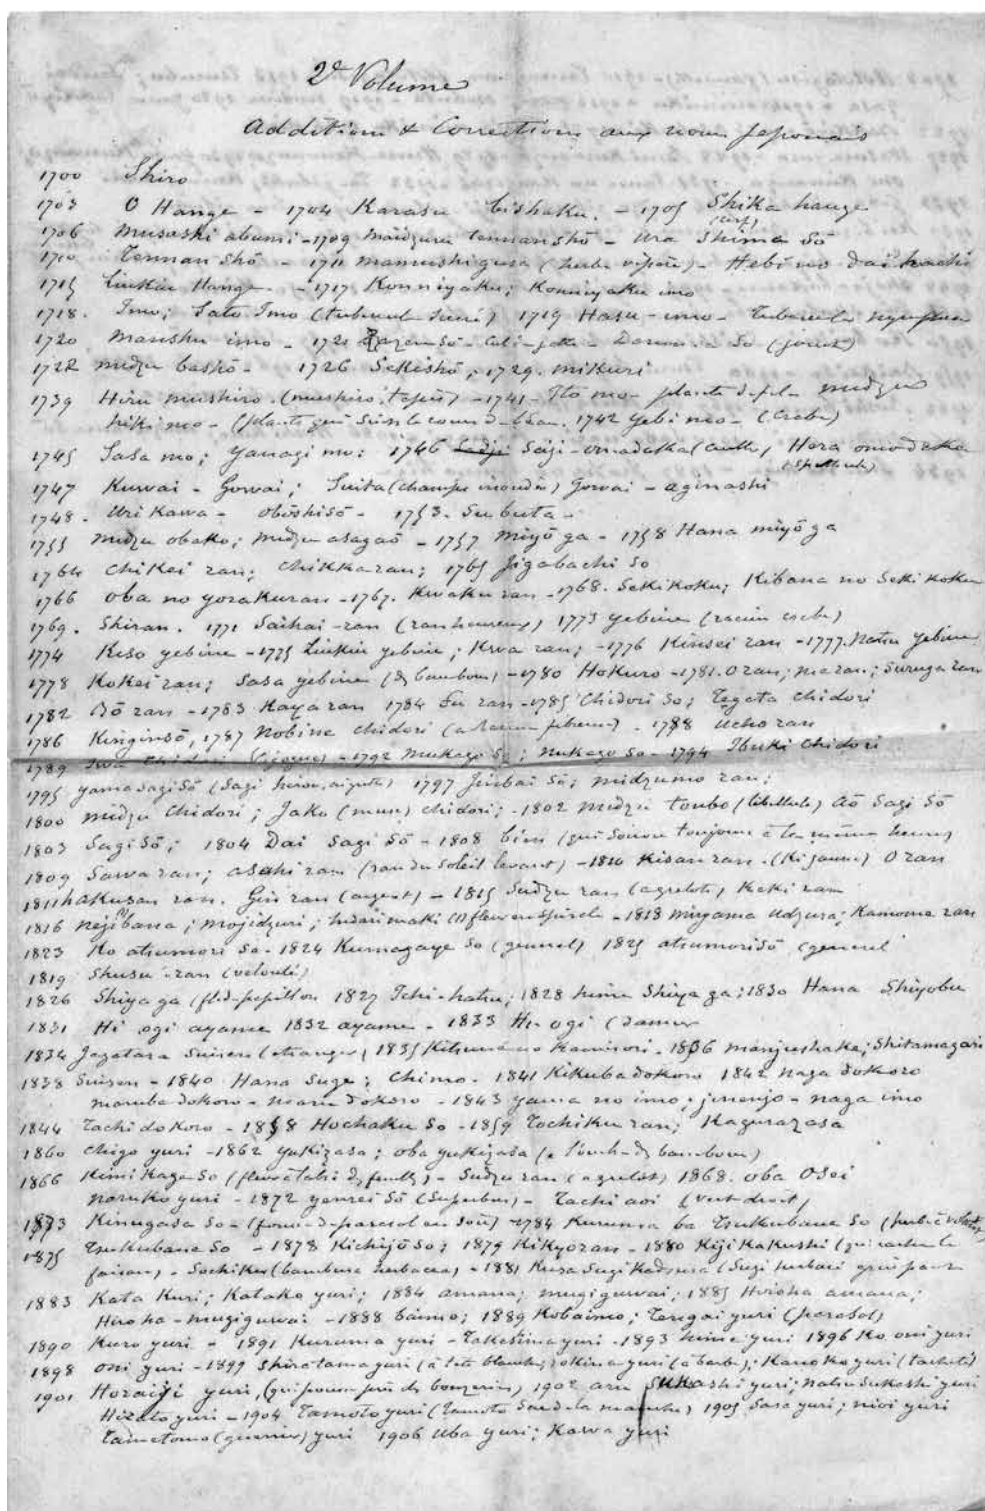 2e Volume
Additions & Corrections aux noms Japonais
1700 Shiro
1703 O Hange - 1704 Karasu bishaku. - 1705 Shika hange
1706 Musashi abumi - 1709 Maidzuru Tennanshō - Ura Shima Sō
1710 Tennan Shō - 1711 Mamushigusa (herbe vipère) - Hebi no dai hachi
1715 Liukiu Hange - 1717 Konniyaku; Konniyaku imo
1718. Imo; Sato Imo 1719 Hasu-imo -
1720 Manshu imo - 1721 Zazen Sō - So
1722 midzu bashō - 1726 Sekishō, 1729. mikuri
1739 Hiru mushiro. (mushiro, tapis) - 1741 - Ito mo - plante d. midzu
hiki mo - (plante qui suit le cours d. l'eau. 1742 Yebi mo -
1745 Sasa mo; Yanagi mo: 1746 Saji-omodaka Hera omodaka
(spatule)
1747 Kuwai - Gowai; Suita (champs inondés) Gowai - aginashi
1748 - Uri Kawa - obōshisō - 1753. Subuta -
1755 Midzu obako; Midzu asagaō - 1757 Miyō ga - 1758 Hana miyō ga
1764 Chikei ran; Chikkaran; 1765 Jigabachi so
1766 Oba no yorakuran - 1767. Kwaku ran - 1768. Sekikoku; Kibana no Seki koku
1769. Shiran. 1771 Saihai-ran (ran heureux) 1773 yebine
1774 Kiso yebine - 1775 Liukiu yebine; Kwa ran; - 1776 Kinsei ran - 1777. Natsu yebine
1778 Kokei ran; Sasa yebine (d. bambou) - 1780 Hokuro - 1781. O ran; me ran; Suruga ran
1782 Bō ran - 1783 Kaya ran 1784 Fu ran - 1785 Chidori so; Tegata chidori
1786 Kinginsō, 1787 Nobine chidori 1788 Ucho ran
1789 Iwa Chidori - 1792 Mukago So; Nukago so - 1794 Ibuki Chidori
1795 yama sagi Sō (Sagi héron, aigrette) 1797 Jinbai Sō; midzumo ran;
1800 Midzu Chidori; Jako (musc) chidori; - 1802 Midzu tonbo (libellule) Aō Sagi Sō
1803 Sagi Sō; 1804 Dai Sagi Sō - 1808 (qui toujours à la même heure)
1809 Sawa ran; asahi ran (ran du soleil levant) - 1810 Kisan ran. (Ki jaune) O ran
1811 hakusan ran. Gin ran (argent) - 1815 Sudzu ran (a grelots) Kaki ran
1816 Nejibana; Mojidzuri; hidari maki fleur en spirale - 1818 Miyama Udzura; Kamome ran
1823 Ko atsumori so - 1824 Kumagaye So (general) 1825 atsumorisō (general
1819 Shusu-ran (velouté)
1826 Shiyaga (fl. d. papillon 1827 Ichi-hatsu; 1828 hime Shiyaga; 1830 Hana Shiyobu
1831 Hi ogi ayame 1832 ayame - 1833 Hi ogi (dames
1834 Jagatara Suisen (etranger) 1835 Kitsune no Kamisori - 1836 Manjushake; Shitamagari
1838 Suisen - 1840 Hana Suge; Chimo. 1841 Kikuba dokoro 1842 Naga dokoro
maruba dokoro - dokoro - 1843 yama no imo; jinenjo - naga imo
1844 Tachi dokoro - 1858 Hochaku So - 1859 Tochiku ran; Kagurazasa
1860 chigo yuri - 1862 yukizasa; oba yukizasa (bambou)
1866 Kimi Kage So - Sudzu ran (a grelots) 1868. oba Osei
naruko yuri - 1872 yenrei Sō (Superbus) - Tachi aoi (vert droit)
1873 Kinugasa So - (forme d. parasol en soie) - 1784 Kuruma ba Tsukubane So
1875 Tsukubane So - 1878 Kichijō So; 1879 Kikyoran - 1880 Kiji Kakushi (qui cache le
faisan) - Sochiku (bambusa herbacea) - 1881 Kusa Sugi Kadzura
1883 Kata Kuri; Katako yuri; 1884 amana; mugiguwai; 1885 Hiroha amana;
Hiroha - mugiguwai - 1888 baimo; 1889 Kobaimo; Tengai yuri (parasol)
1890 Kuro yuri - 1891 Kuruma yuri - Takeshima yuri - 1893 hime yuri 1896 Ko oni yuri
1898 oni yuri - 1899 Shiratama yuri (à tête blanche) Okina yuri (à barbe); Kanoko yuri (tacheté)
1901 Horaiji yuri, 1902 aru Sukashi yuri; Natsu Sukashi yuri
yuri - 1904 Tamoto yuri 1905 Sasa yuri; nioi yuri
Tametomo (guerrier) yuri 1906 Uba yuri; Kawa yuri